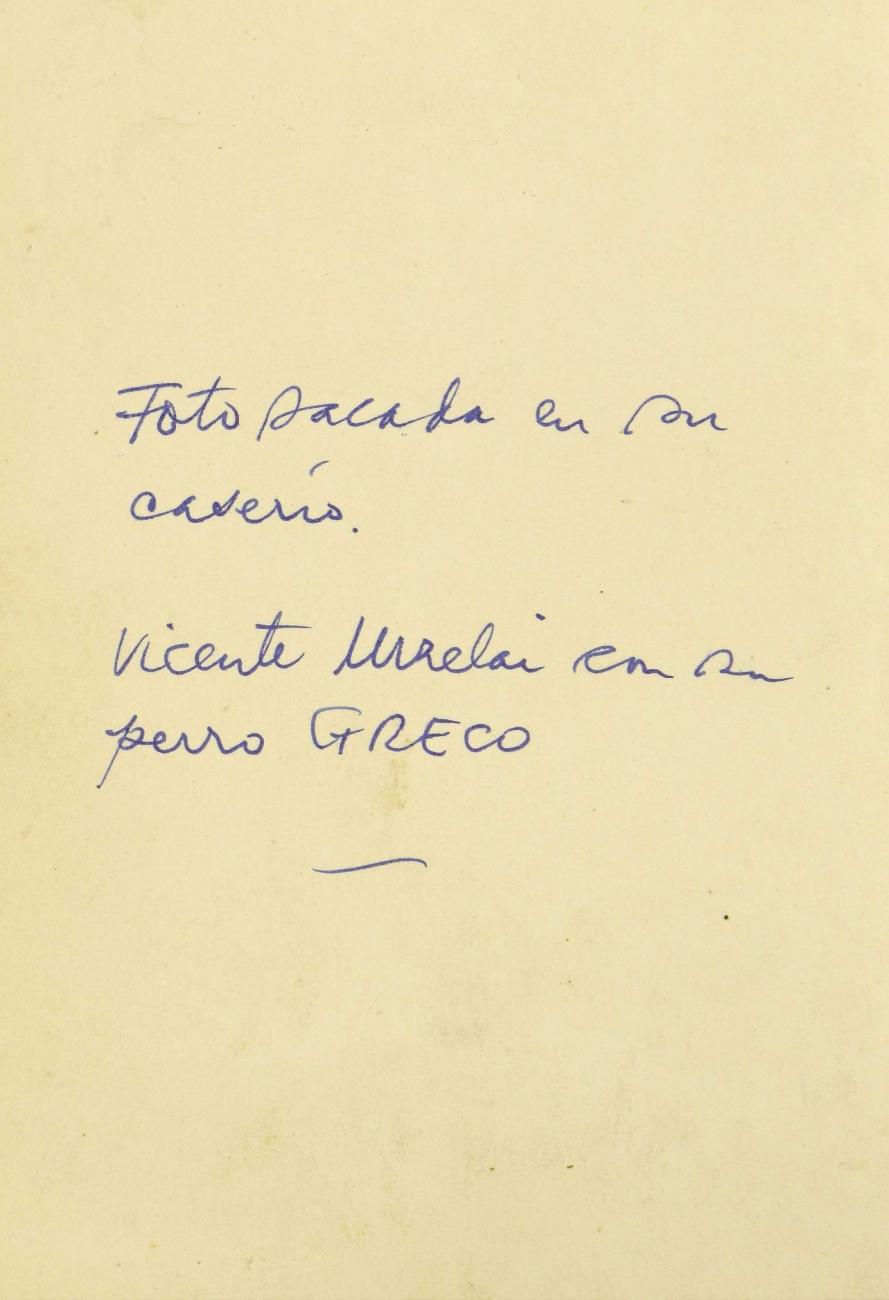 Foto sacada en su
caserío.
Vicente Urrelai con su
perro GRECO